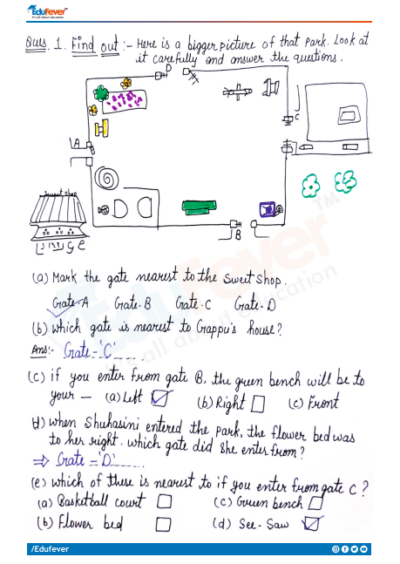 EduFever
Ques. 1. Find out :- Here is a bigger picture of that park. Look at
it carefully and answer the questions.
D
C
A
Sweet Shop
B
(a) Mark the gate nearest to the Sweet Shop.
Gate-A Gate-B Gate-C Gate-D
(b) Which gate is nearest to Gappu's house?
Ans:- Gate-'C'
(c) if you enter from gate B, the green bench will be to
your — (a) Left (b) Right (c) Front
d) When Shuhasini entered the park, the flower bed was
to her right. Which gate did she enter from?
⇒ Gate = 'D'
(e) Which of these is nearest to if you enter from gate C ?
(a) Basketball court (c) Green bench
(b) Flower bed (d) See-Saw
/Edufever